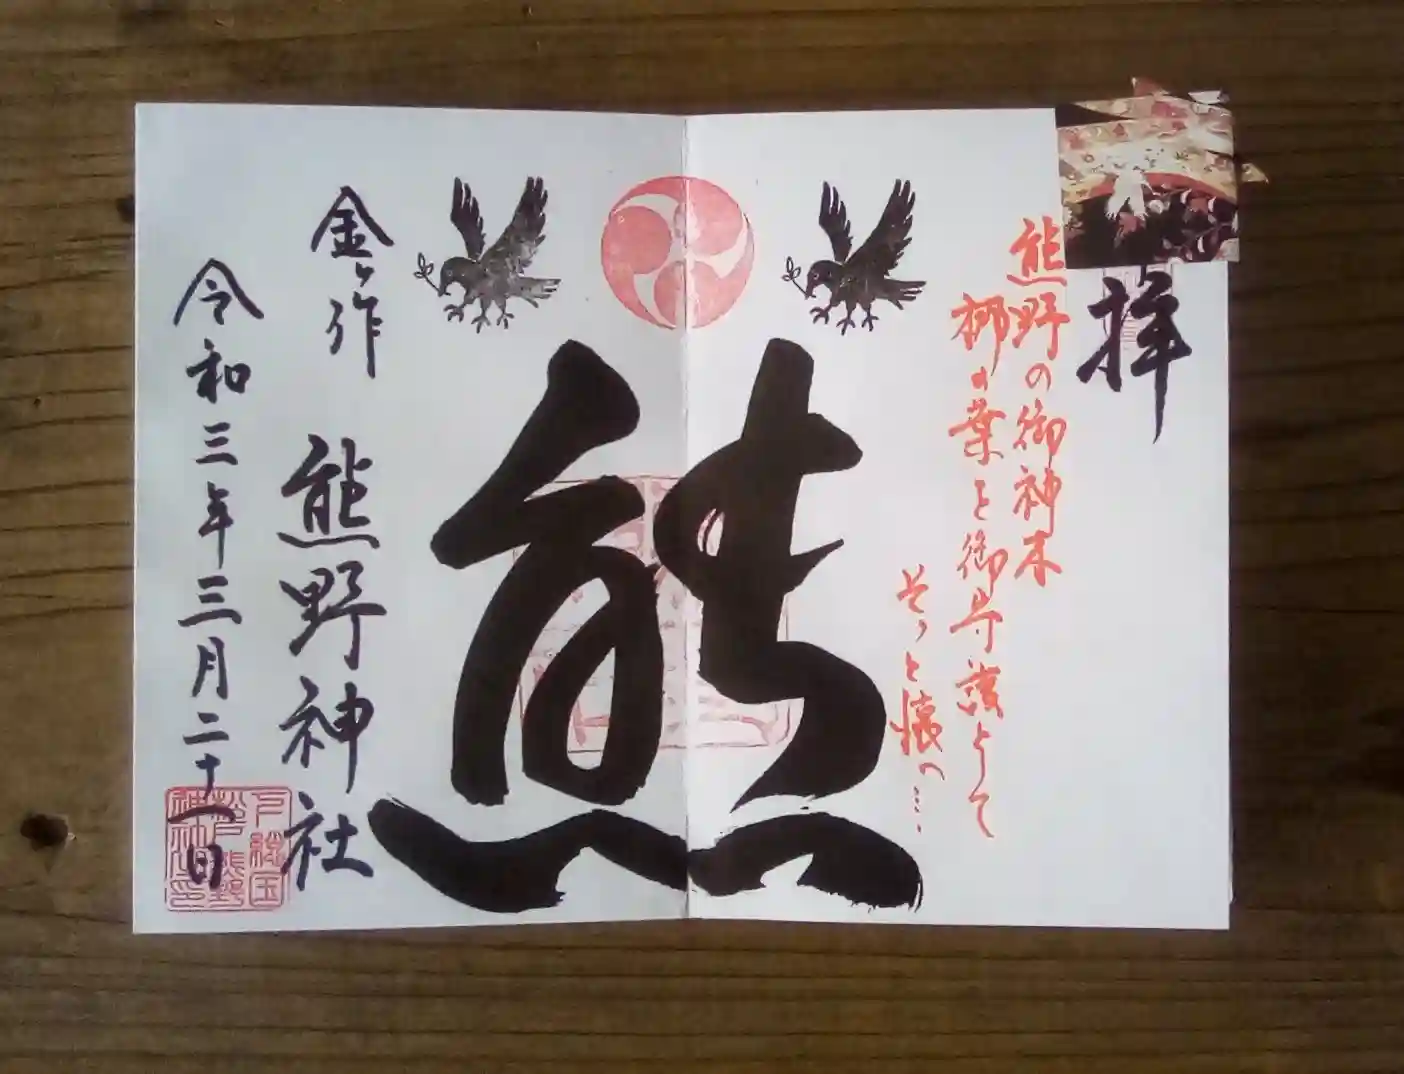 拝
熊野の御神木
梛の葉を御守護として
そっと懐へ…
熊
金ヶ作
熊野神社
令和三年三月二十一日
下総国
松戸熊野
神社之印